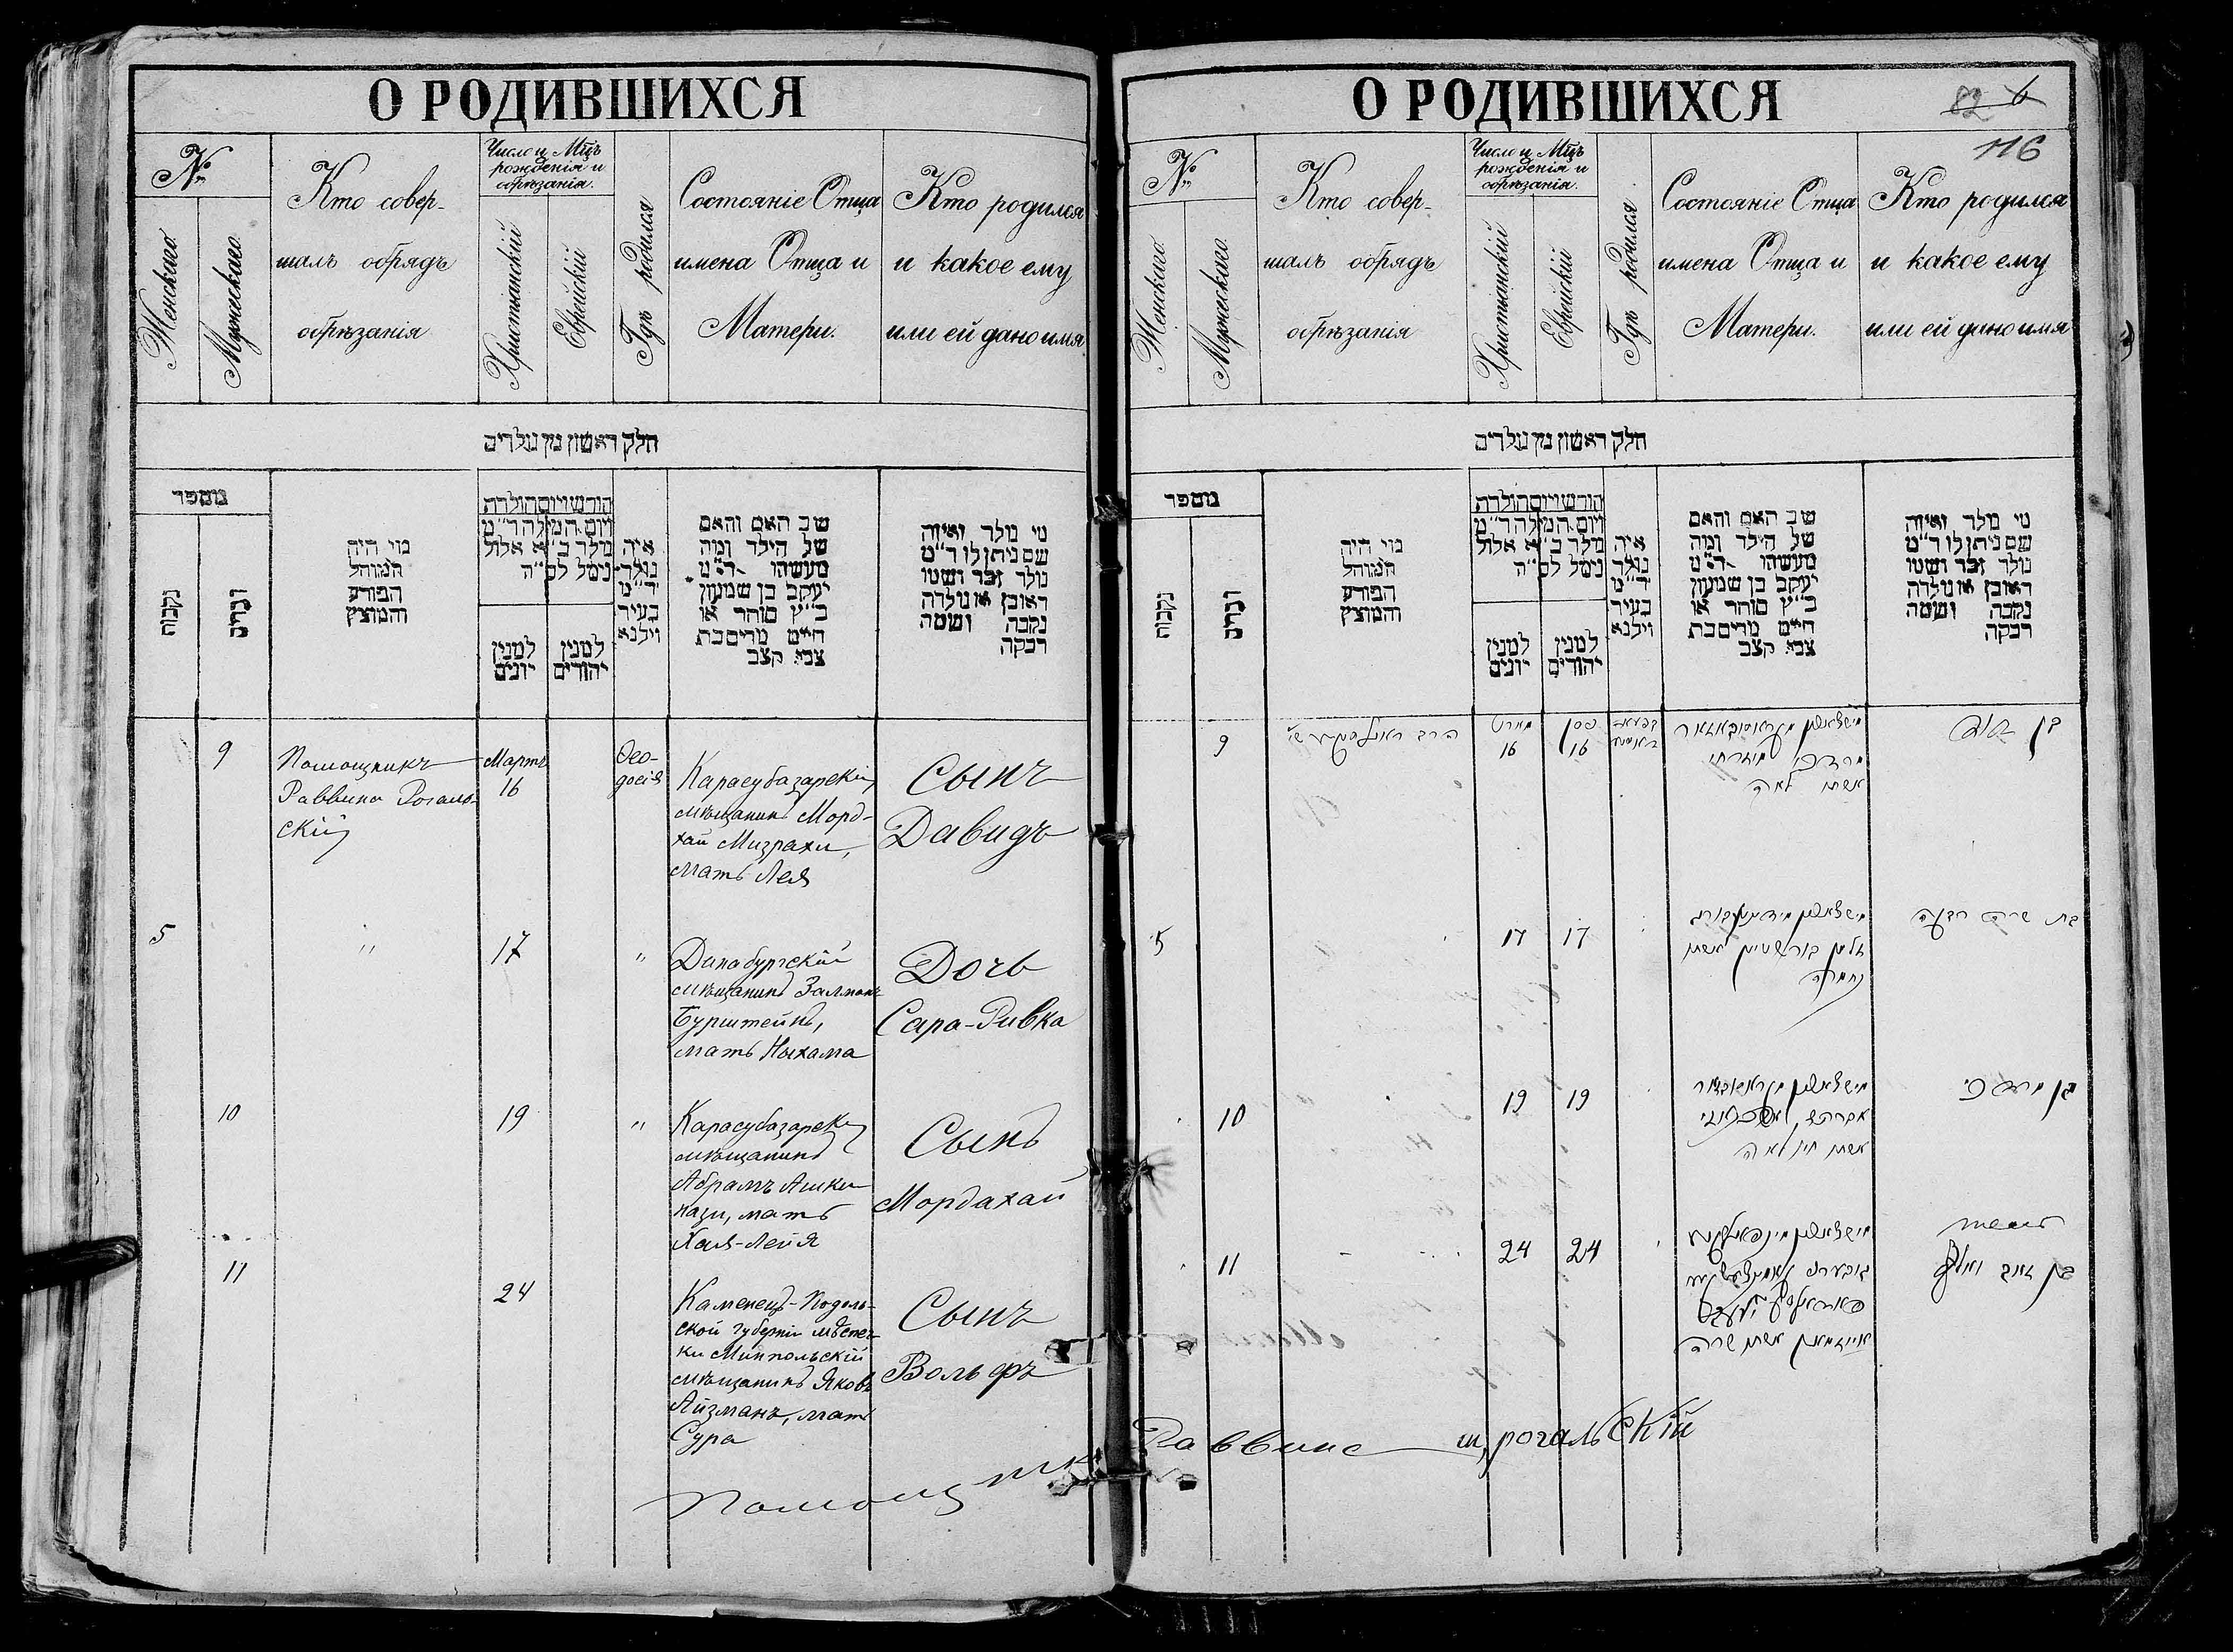 О РОДИВШИХСЯ
№
Женскаго
Мужескаго
Кто совер-
шалъ обрядъ
обрѣзанія
Число и Мѣцъ
рожденія и
обрѣзанія.
Христьянскій
Еврейскій
Гдѣ родился
Состояніе Отца
имена Отца и
Матери.
Кто родился
и какое ему
или ей дано имя
חלק ראשון מן נולדים
מספר
נקבות
זכרים
מי היה
המוהל
הפורע
והמוצץ
חודש ויום הולדת
ויום המילה ד״מ
נולד כ״א אלול
נימל לס״ה
למנין
יונים
למנין
יהודים
איה
נולד
ד״מ
בעיר
ווילנא
שב האם והאם
של הילד ומה
מעשהו ד״מ
יעקב בן שמעון
כ״ץ סוחר או
חייט מרים בת
צבי קצב
מי נולד ואיזה
שם ניתן לו ד״מ
נולד זכר ושמו
ראובן או נולדה
נקבה ושמה
רבקה
9
Помощникъ
Раввина Рогаль-
скій
Мартъ
16
Ѳео-
досія
Карасубазарскій
мѣщанинъ Морд-
хай Мизрахи,
мать Лея
Сынъ
Давидъ
5
"
17
"
Динабургскій
мѣщанинъ Залманъ
Бурштейнъ,
мать Ныхама
Дочь
Сара-Ривка
10
19
"
Карасубазарскій
мѣщанинъ
Абрамъ Ашки
нази, мать
Хая-Лея
Сынъ
Мордахай
11
24
Каменецъ-Подоль-
ской губерніи мѣстеч-
ки Минпольскій
мѣщанинъ Яковъ
Айзманъ, мать
Сура
Сынъ
Вольфъ
Помощникъ
О РОДИВШИХСЯ
82 6
116
№
Женскаго
Мужескаго
Кто совер-
шалъ обрядъ
обрѣзанія
Число и Мѣцъ
рожденія и
обрѣзанія.
Христьянскій
Еврейскій
Гдѣ родился
Состояніе Отца
имена Отца и
Матери.
Кто родился
и какое ему
или ей дано имя
חלק ראשון מן נולדים
מספר
נקבות
זכרים
מי היה
המוהל
הפורע
והמוצץ
חודש ויום הולדת
ויום המילה ד״מ
נולד כ״א אלול
נימל לס״ה
למנין
יונים
למנין
יהודים
איה
נולד
ד״מ
בעיר
ווילנא
שב האם והאם
של הילד ומה
מעשהו ד״מ
יעקב בן שמעון
כ״ץ סוחר או
חייט מרים בת
צבי קצב
מי נולד ואיזה
שם ניתן לו ד״מ
נולד זכר ושמו
ראובן או נולדה
נקבה ושמה
רבקה
9
הרב
מארט
16
ניסן
16
מרדכי מזרחי
אשתו לאה
בן דוד
5
17
17
זלמן בורשטיין אשתו
נחמה
בת שרה רבקה
10
19
19
אברהם אשכנזי
אשתו חיה לאה
בן מרדכי
11
24
24
אייזמאן אשתו שרה
בן זאב וואלף
Раввина Рогальскій